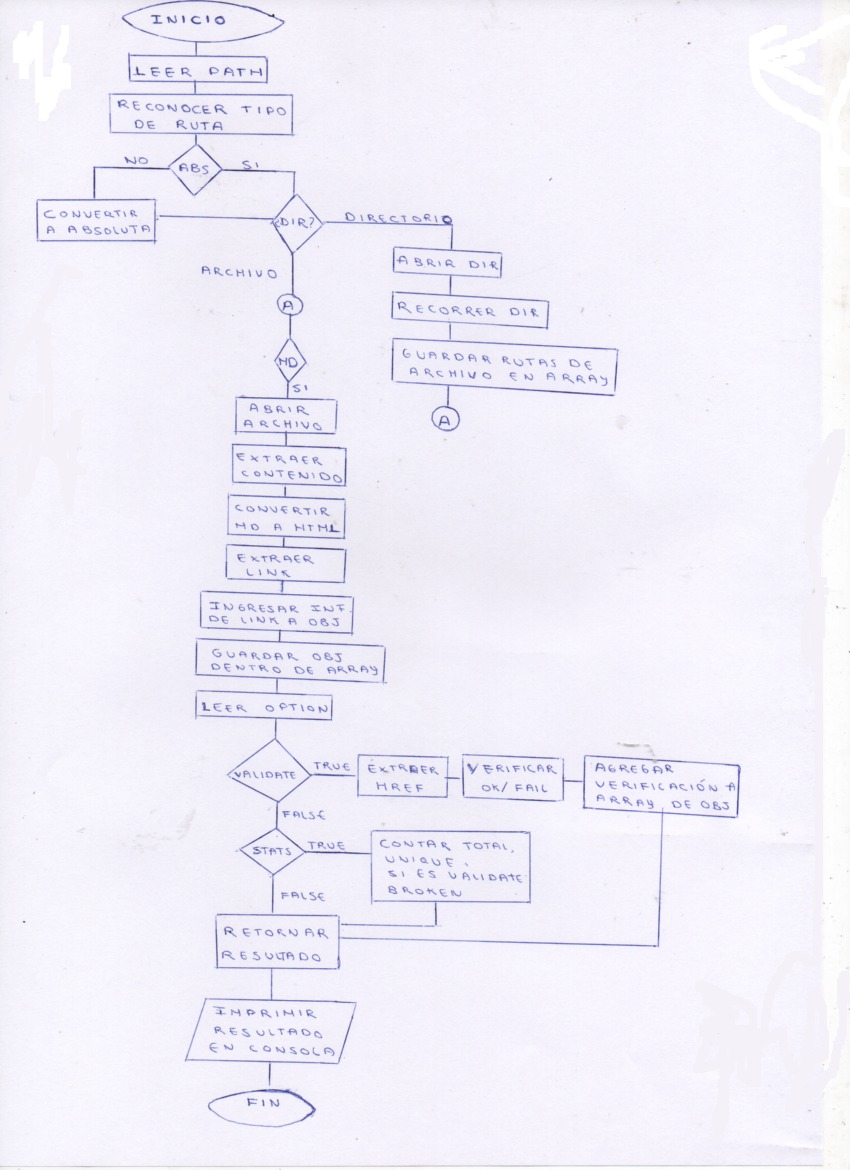 INICIO
LEER PATH
RECONOCER TIPO
DE RUTA
ABS
NO
SI
CONVERTIR
A ABSOLUTA
¿DIR?
DIRECTORIO
ARCHIVO
A
ABRIR DIR
RECORRER DIR
GUARDAR RUTAS DE
ARCHIVO EN ARRAY
A
MD
SI
ABRIR
ARCHIVO
EXTRAER
CONTENIDO
CONVERTIR
MD A HTML
EXTRAER
LINK
INGRESAR INF.
DE LINK A OBJ
GUARDAR OBJ
DENTRO DE ARRAY
LEER OPTION
VALIDATE
TRUE
EXTRAER
HREF
VERIFICAR
OK/FAIL
AGREGAR
VERIFICACIÓN A
ARRAY DE OBJ
FALSE
STATS
TRUE
CONTAR TOTAL,
UNIQUE,
SI ES VALIDATE
BROKEN
FALSE
RETORNAR
RESULTADO
IMPRIMIR
RESULTADO
EN CONSOLA
FIN